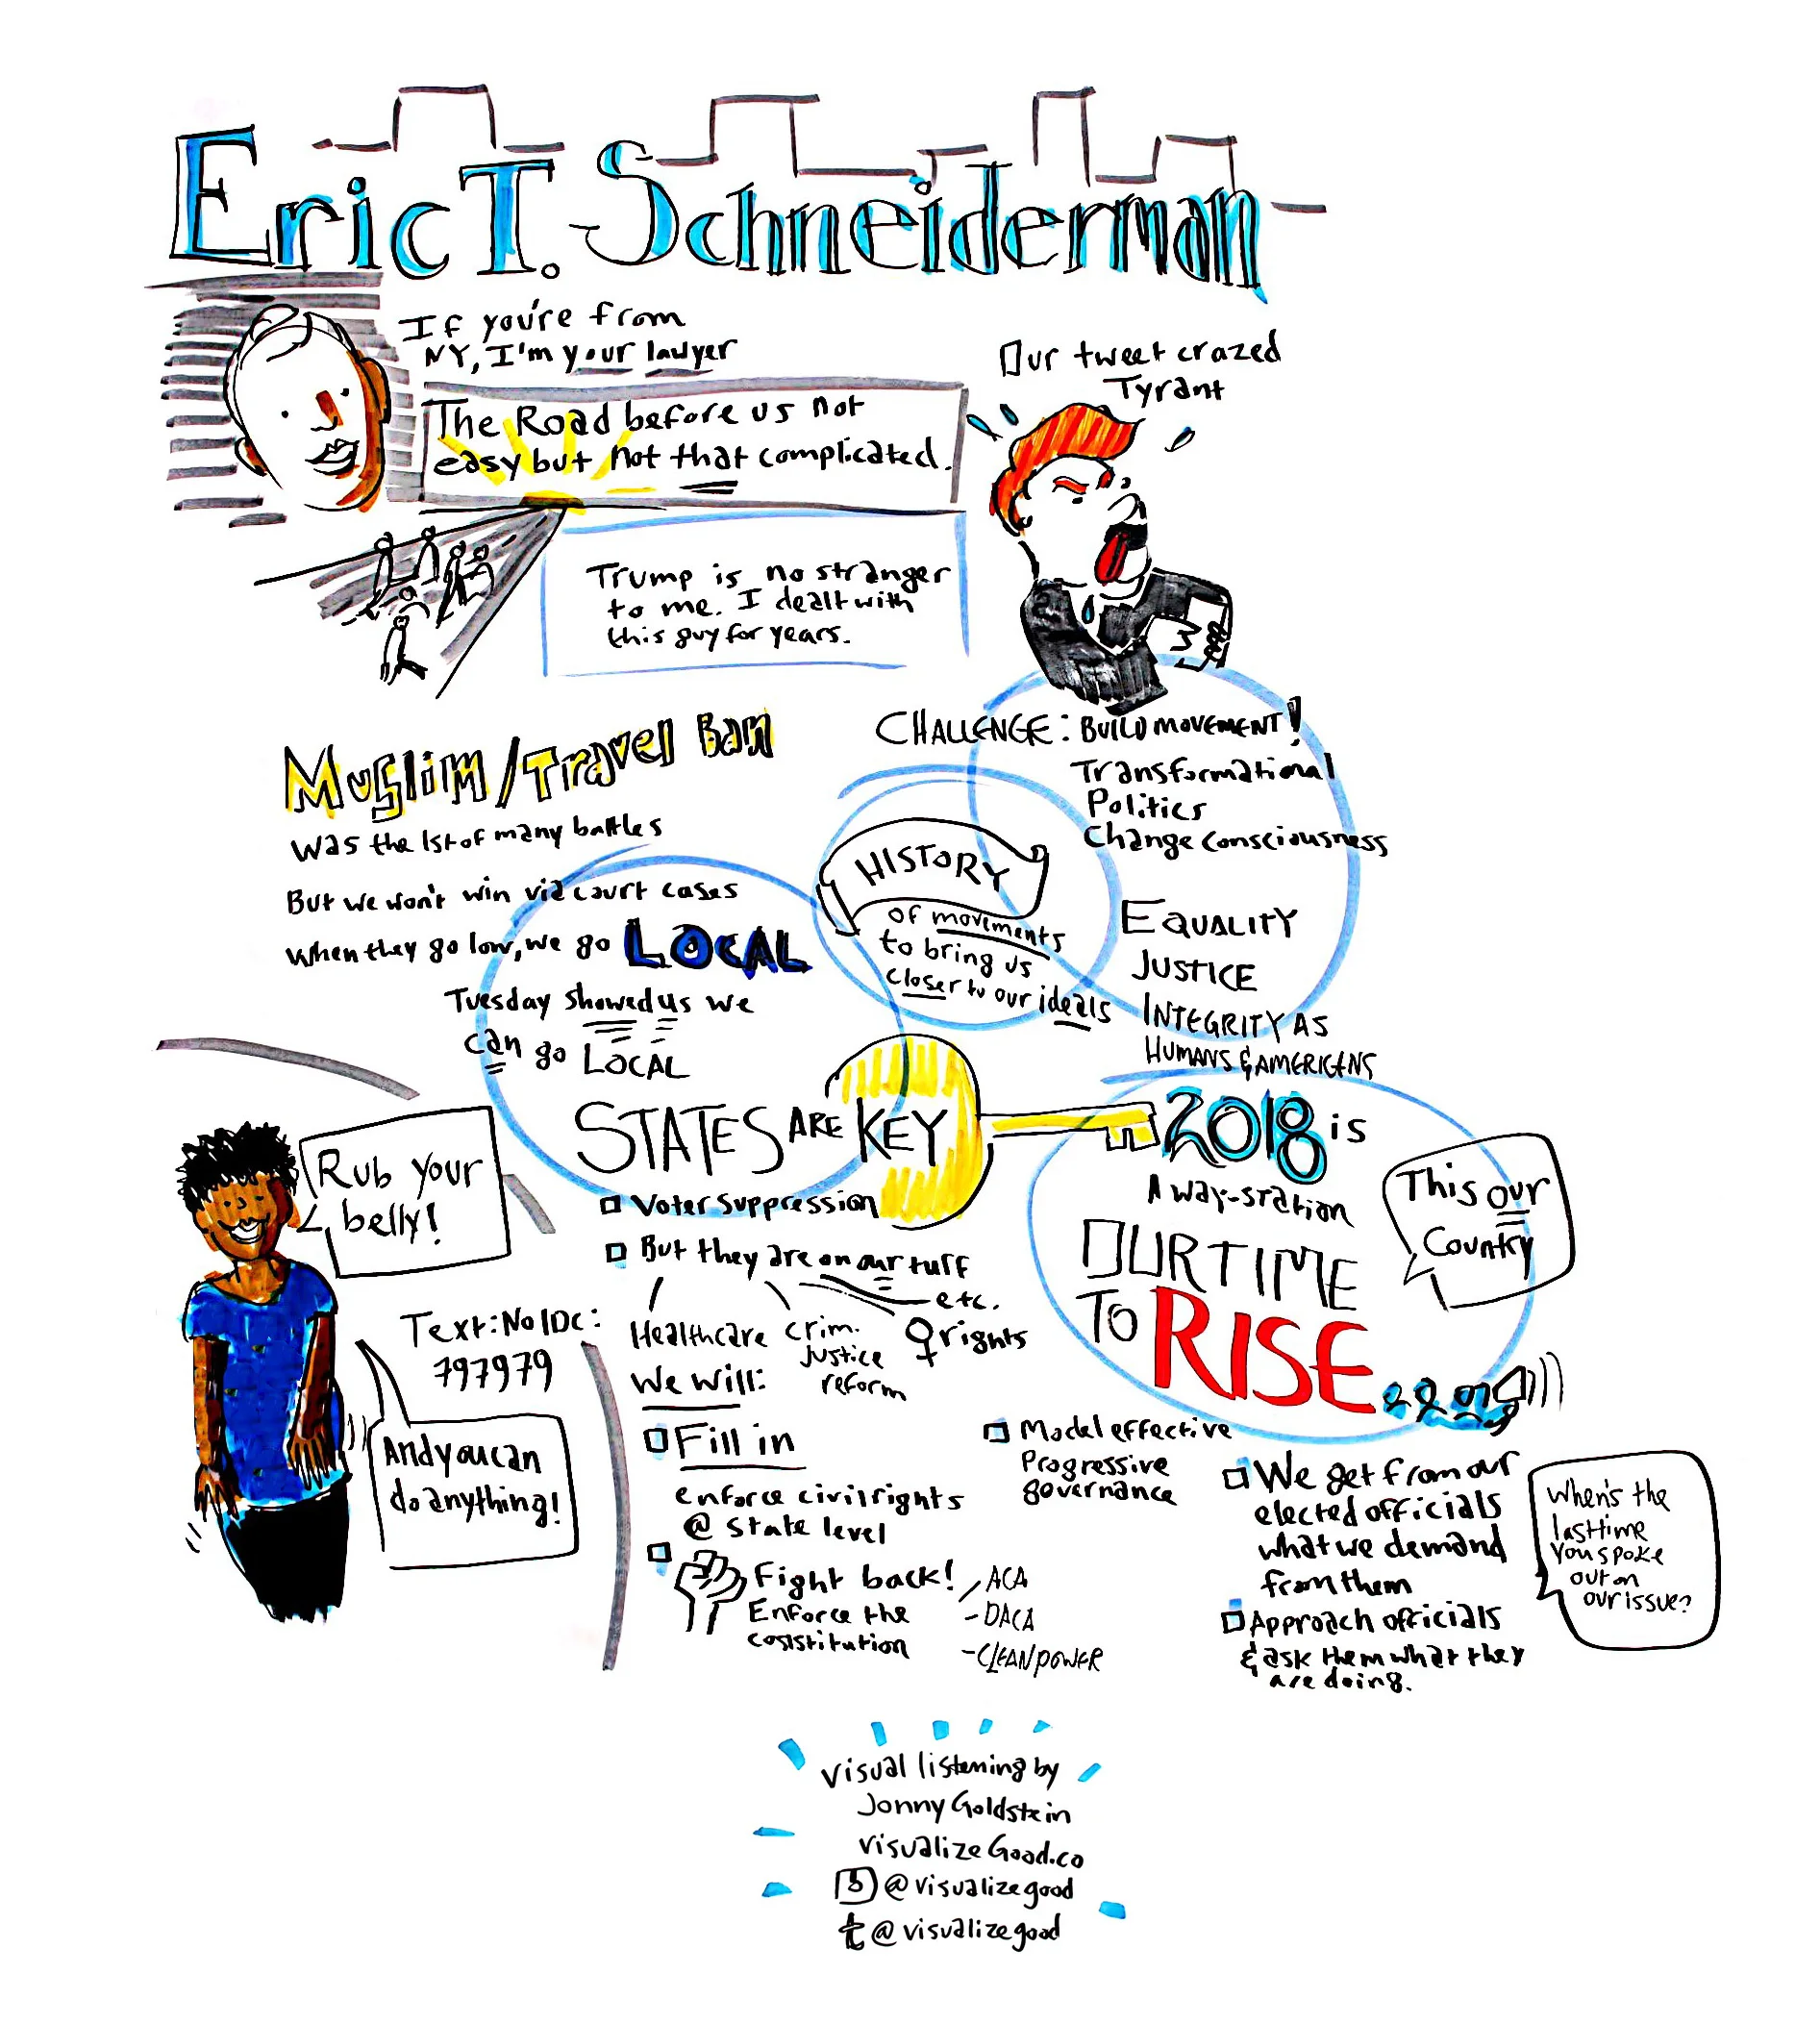 Eric T. Schneiderman
If you're from
NY, I'm your lawyer
The Road before us not
easy but not that complicated.
Our tweet crazed
Tyrant
Trump is no stranger
to me. I dealt with
this guy for years.
Muslim/Travel Ban
Was the 1st of many battles
But we won't win via court cases
When they go low, we go LOCAL
Tuesday showed us we
can go LOCAL
CHALLENGE: BUILD MOVEMENT!
Transformational
Politics
Change Consciousness
HISTORY
of movements
to bring us
closer to our ideals
EQUALITY
JUSTICE
INTEGRITY AS
HUMANS & AMERICANS
STATES ARE KEY
Voter suppression
But they are on our turf
etc.
Healthcare
crim.
justice
reform
♀ rights
We will:
Fill in
enforce civil rights
@ state level
Fight back!
Enforce the
coststitution
ACA
- DACA
- CLEAN POWER
2018 is
A way-station
OUR TIME
TO RISE
This our
Country
Model effective
Progressive
governance
We get from our
elected officials
what we demand
from them
Approach officials
& ask them what they
are doing.
When's the
last time
you spoke
out on
our issue?
Rub your
belly!
Text: No IDC:
797979
And you can
do anything!
visual listening by
Jonny Goldstein
visualizeGood.co
@visualizegood
t @visualizegood